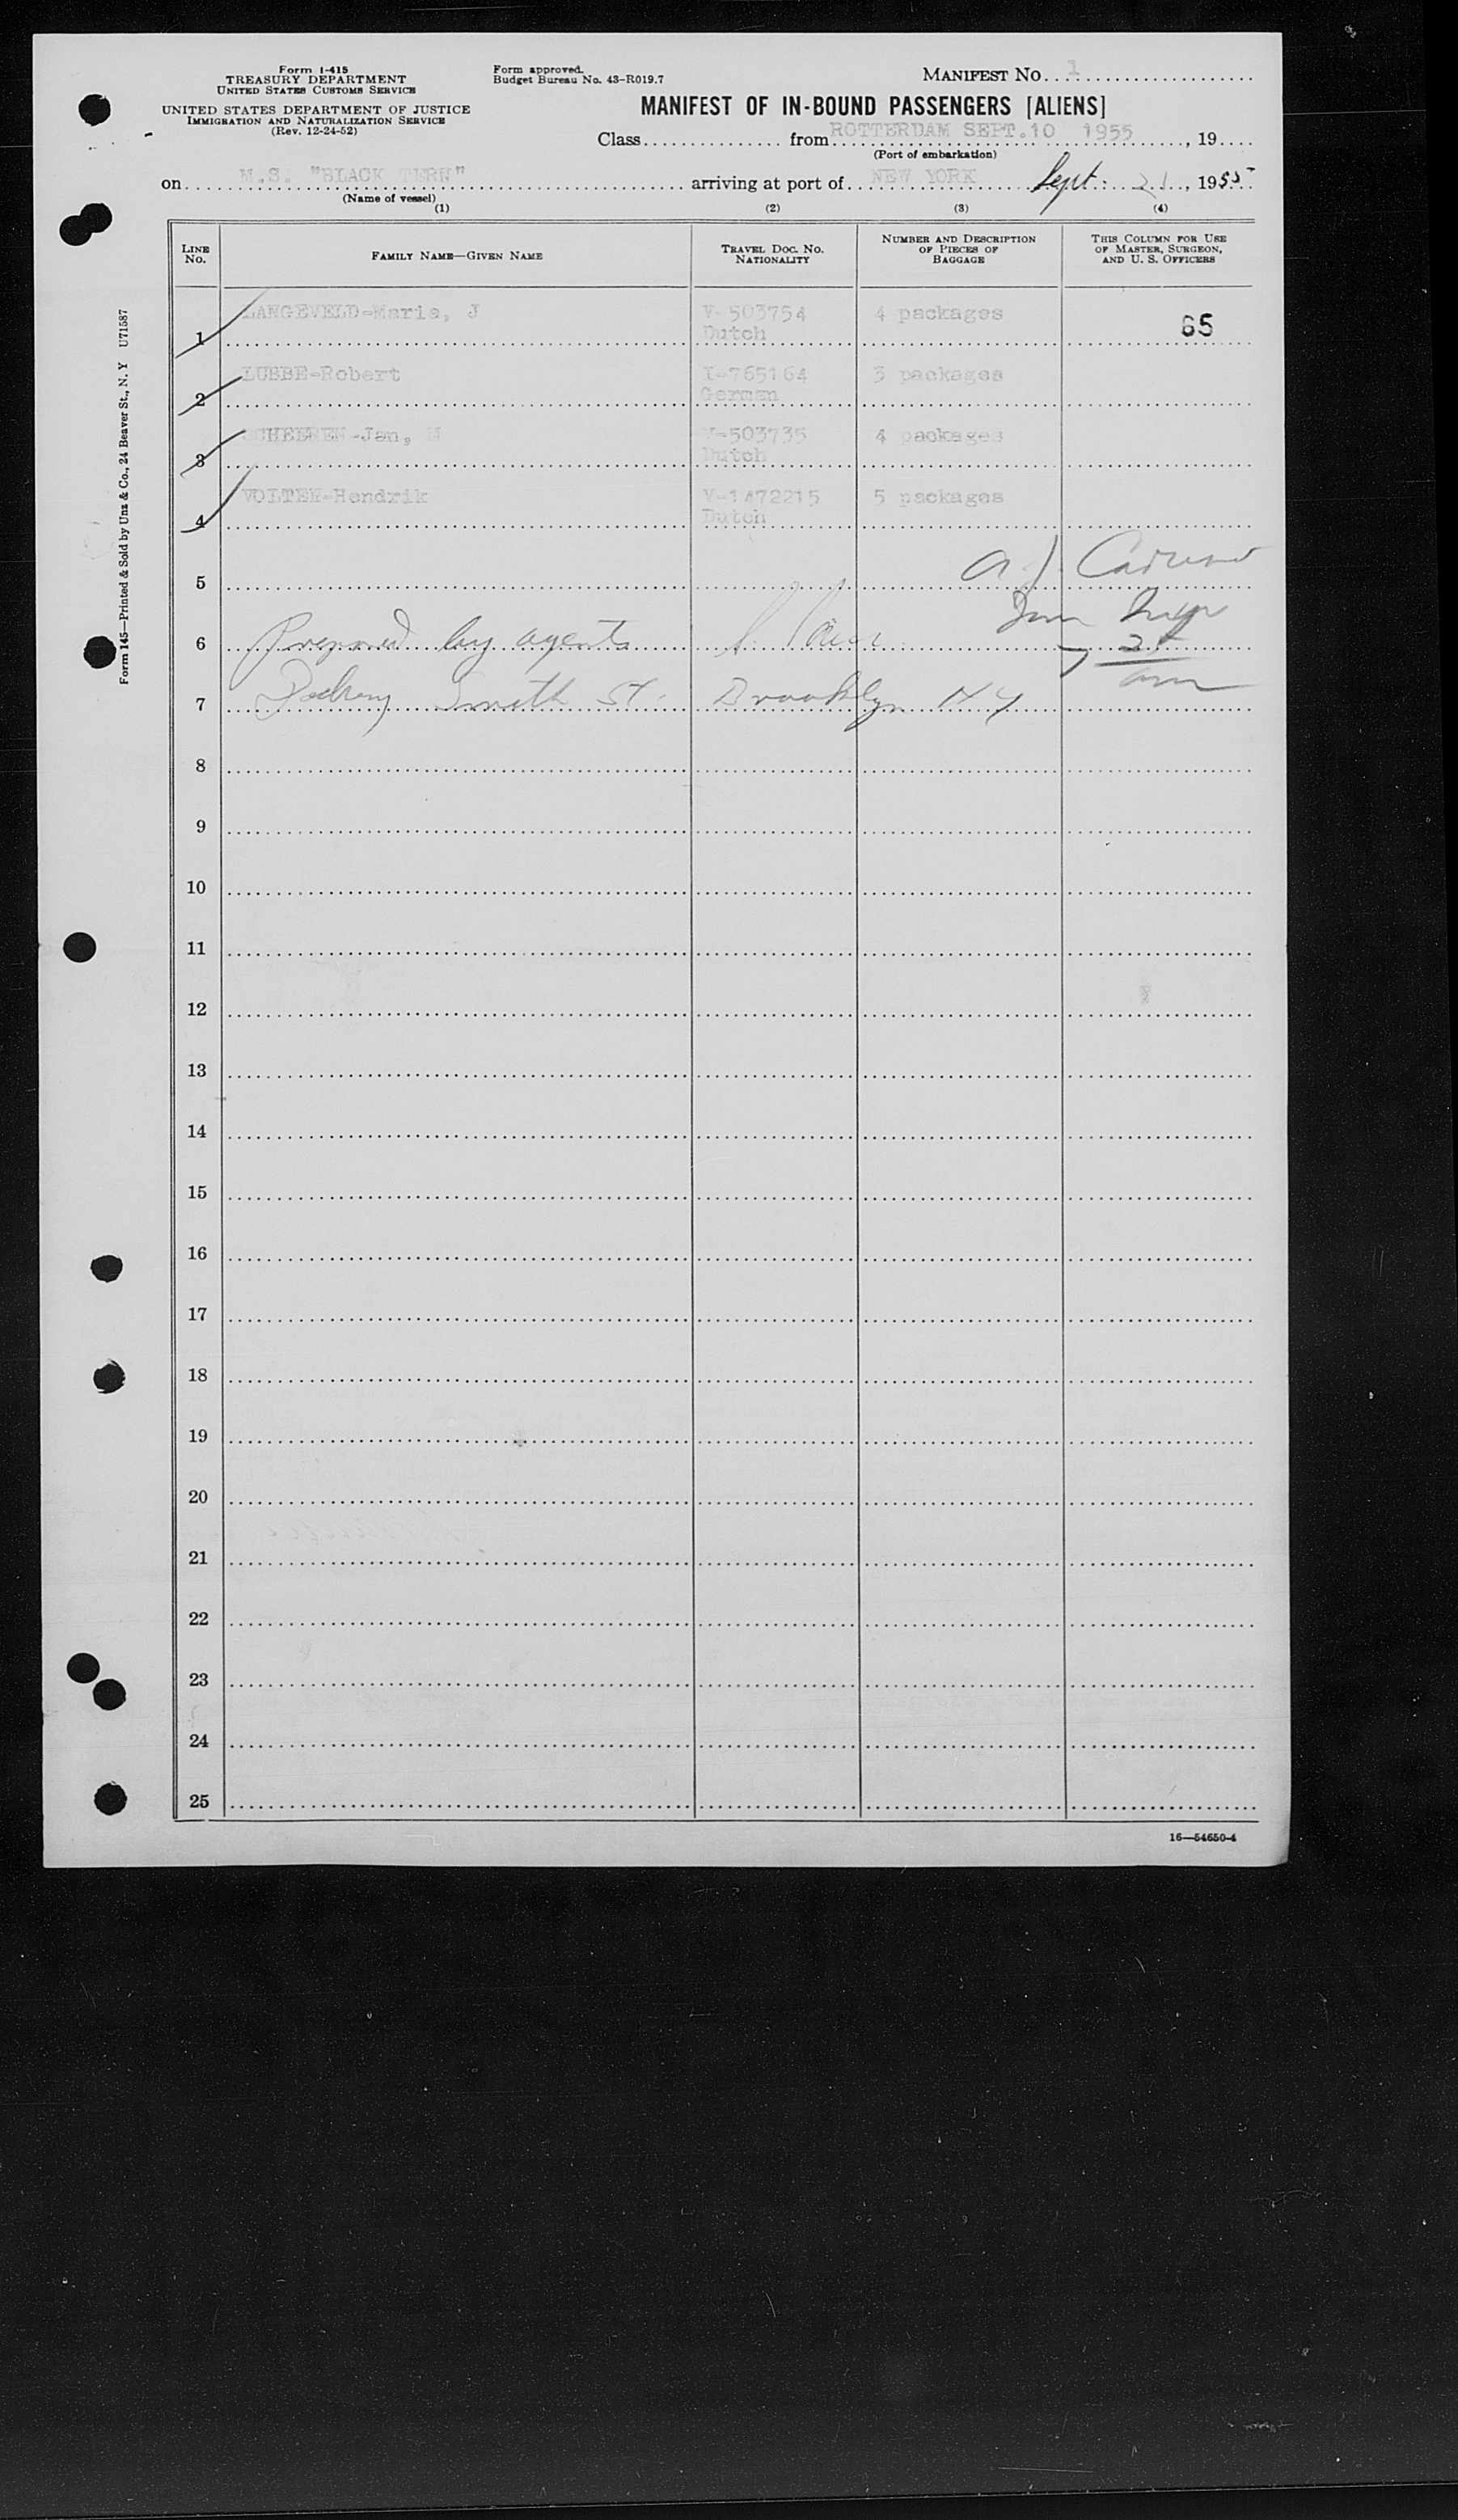 Form I-415
TREASURY DEPARTMENT
UNITED STATES CUSTOMS SERVICE
UNITED STATES DEPARTMENT OF JUSTICE
IMMIGRATION AND NATURALIZATION SERVICE
(Rev. 12-24-52)
Form approved.
Budget Bureau No. 43-R019.7
MANIFEST NO. 1
MANIFEST OF IN-BOUND PASSENGERS [ALIENS]
Class from ROTTERDAM SEPT.10 1955, 19
(Port of embarkation)
on M.S. "BLACK TERN" arriving at port of NEW YORK Sept. 21, 1955
(Name of vessel)
(1) (2) (3) (4)
LINE NO. FAMILY NAME—GIVEN NAME TRAVEL DOC. NO. NATIONALITY NUMBER AND DESCRIPTION OF PIECES OF BAGGAGE THIS COLUMN FOR USE OF MASTER, SURGEON, AND U. S. OFFICERS
1 LANGEVELD-Maria, J V-503754 4 packages 65
Dutch
2 LUBBE-Robert I-765164 3 packages
German
3 -Jan, V-503735 4 packages
Dutch
4 Hendrik V-1472215 5 packages
Dutch
5 A. J.
6 Prepared by agents
7 Smith St. Brooklyn NY
8
9
10
11
12
13
14
15
16
17
18
19
20
21
22
23
24
25
16—54650-4
Form 145—Printed & Sold by Unz & Co., 24 Beaver St., N. Y U71587